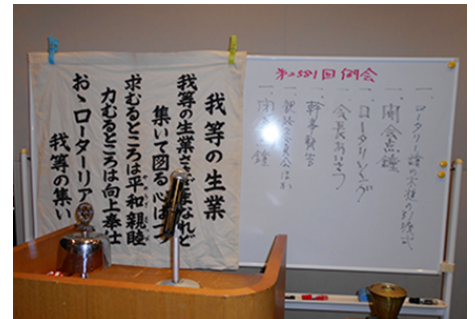 我等の生業
我等の生業さまざまなれど
集いて図る心は一つ
求むるところは平和親睦
力むるところは向上奉仕
おゝロータリアン
我等の集い
第2581回例会
一、開会点鐘
一、ロータリーソング
一、会長あいさつ
一、幹事報告
一、閉会点鐘